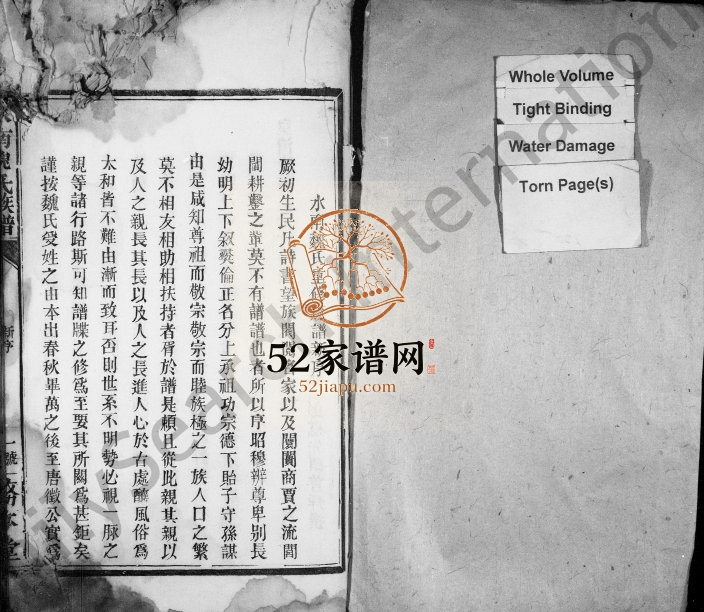 水南魏氏重修族譜新序
厥初生民乃詩書望族閥閱名家以及闤闠商賈之流閭
閻耕鑿之輩莫不有譜譜也者所以序昭穆辨尊卑別長
幼明上下叙彝倫正名分上承祖功宗德下貽子守孫謀
由是咸知尊祖而敬宗敬宗而睦族極之一族人口之繁
莫不相友相助相扶持者胥於譜是賴且從此親其親以
及人之親長其長以及人之長進人心於古處釀風俗爲
太和皆不難由漸而致耳否則世系不明勢必視一脉之
親等諸行路斯可知譜牒之修爲至要其所關爲甚鉅矣
謹按魏氏受姓之由本出春秋畢萬之後至唐徵公實爲
南魏氏族譜
新序
一號
務本堂
Whole Volume
Tight Binding
Water Damage
Torn Page(s)
52家谱网
52jiapu.com
ilySearch International